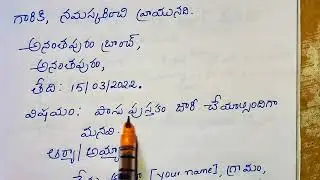 గారికి, నమస్కరించి వ్రాయునది.
అనంతపురం బ్రాంచ్,
అనంతపురం,
తేది: 15/03/2022.
విషయం: పాసు పుస్తకం జారీ చేయాల్సిందిగా
మనవి.
ఆర్యా/ అయ్యా
[your name], గ్రామం,